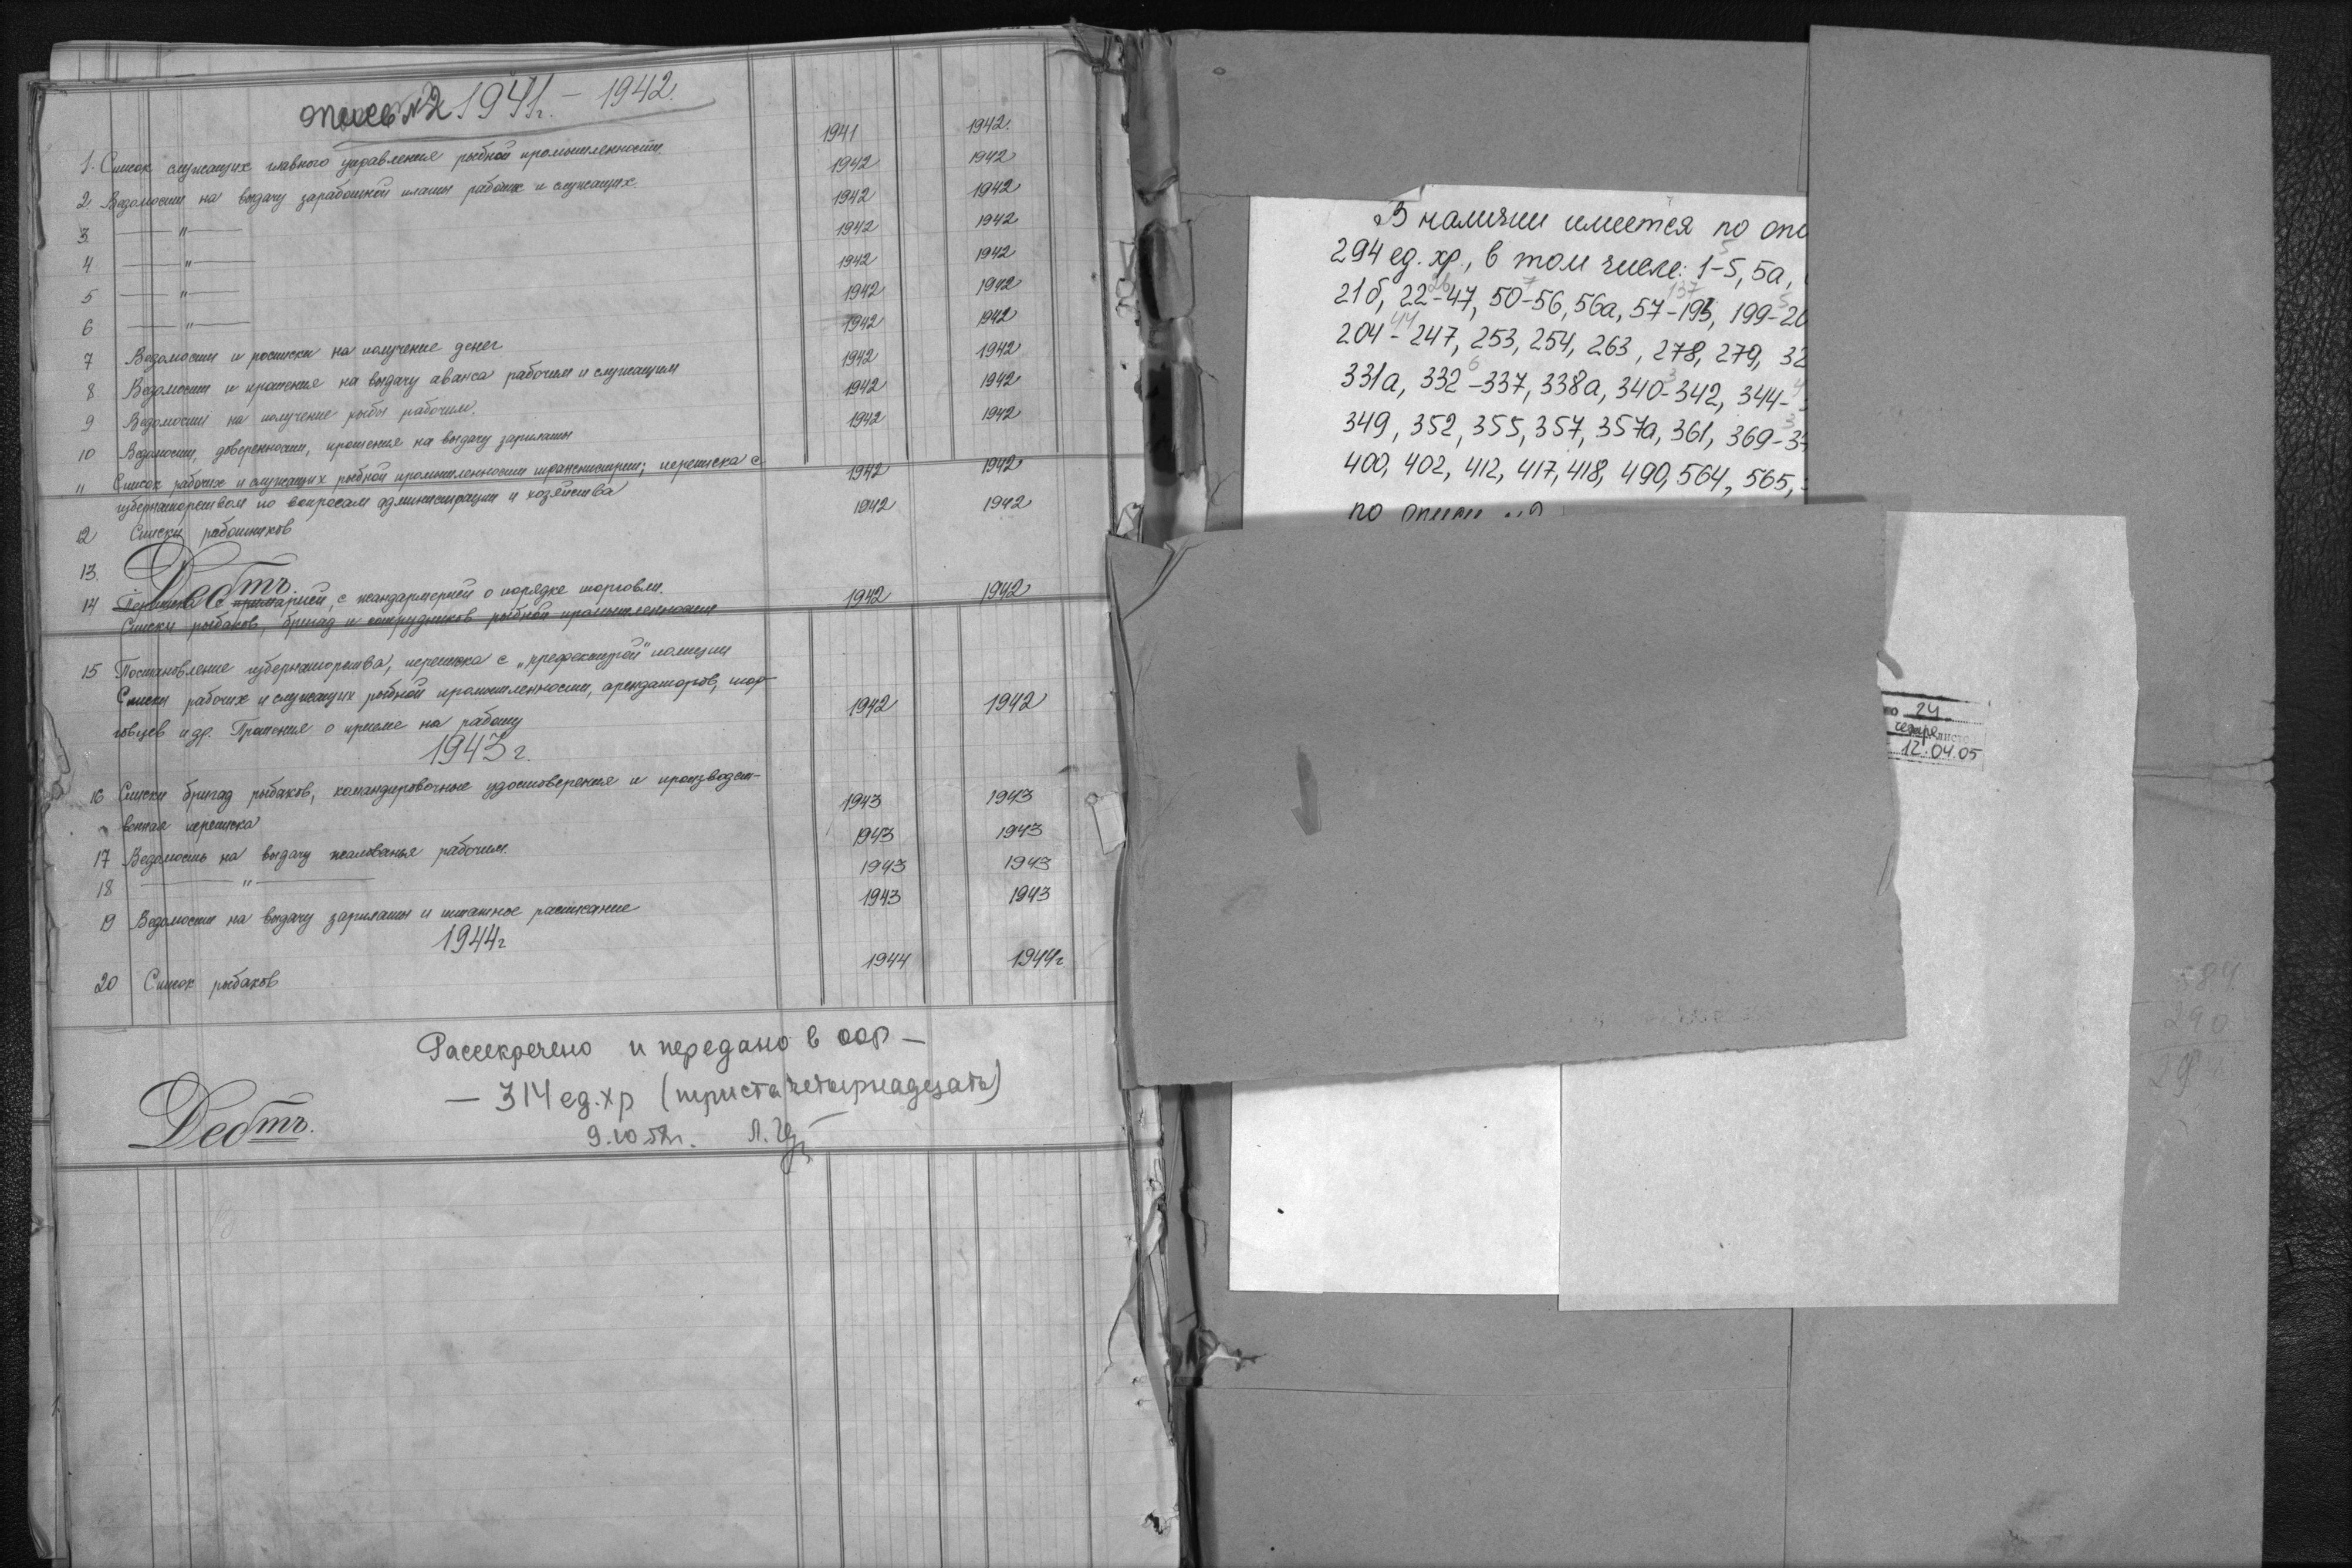 опись №2 1941г. - 1942.
1. Список служащих главного управления рыбной промышленности. 1941 1942.
2. Ведомости на выдачу заработной платы рабочих и служащих. 1942 1942
3. — " — 1942 1942
4 — " — 1942 1942
5 — " — 1942 1942
6 — " — 1942 1942
7 Ведомости и расписки на получение денег 1942 1942
8 Ведомости и прошения на выдачу аванса рабочим и служащим 1942 1942
9 Ведомости на получение рыбы рабочим. 1942 1942
10 Ведомости, доверенности, прошения на выдачу зарплаты 1942 1942
11 Список рабочих и служащих рыбной промышленности транснистрии; переписка с
губернаторством по вопросам администрации и хозяйства 1942 1942
12 Списки работников 1942 1942
13.
Дебтъ.
14 Переписка с примарией, с жандармерией о порядке торговли.
Списки рыбаков, бригад и сотрудников рыбной промышленности 1942 1942
15 Постановление губернаторства, переписка с „префектурой" полиции
Списки рабочих и служащих рыбной промышленности, арендаторов, тор-
говцев и др. Прошения о приеме на работу 1942 1942
1943 г.
16 Списки бригад рыбаков, командировочные удостоверения и производст-
венная переписка 1943 1943
17 Ведомость на выдачу жалованья рабочим. 1943 1943
18 — " — 1943 1943
19 Ведомости на выдачу зарплаты и штатное расписание 1943 1943
1944г
20 Список рыбаков 1944 1944г
Рассекречено и передано в ООФ —
— 314 ед.хр (триста четырнадцать)
Дебтъ.
В наличии имеется по опи
294 ед. хр., в том числе: 1-5, 5а,
21б, 22-47, 50-56, 56а, 57-193, 199-20
204-247, 253, 254, 263, 278, 279, 32
331а, 332-337, 338а, 340-342, 344-
349, 352, 355, 357, 357а, 361, 369-37
400, 402, 412, 417, 418, 490, 564, 565,
по описи
24
четыре листо
12.04.05
584
290